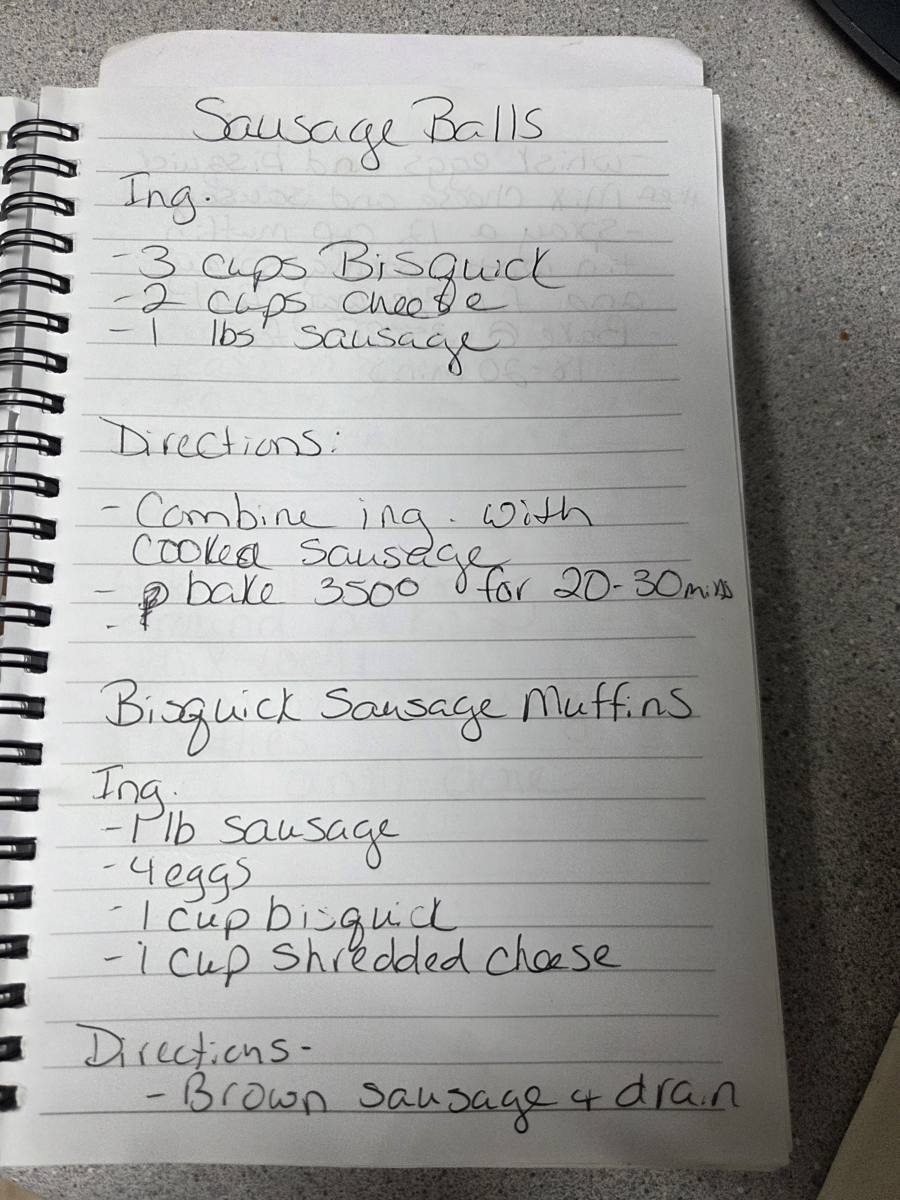 Sausage Balls
Ing.
- 3 cups Bisquick
- 2 cups cheese
- 1 lbs sausage
Directions:
- Combine ing. with
cooked sausage
- bake 3500 for 20-30 mins
-
Bisquick Sausage Muffins
Ing.
- 1 lb sausage
- 4 eggs
- 1 cup bisquick
- 1 cup shredded cheese
Directions -
- Brown sausage & drain